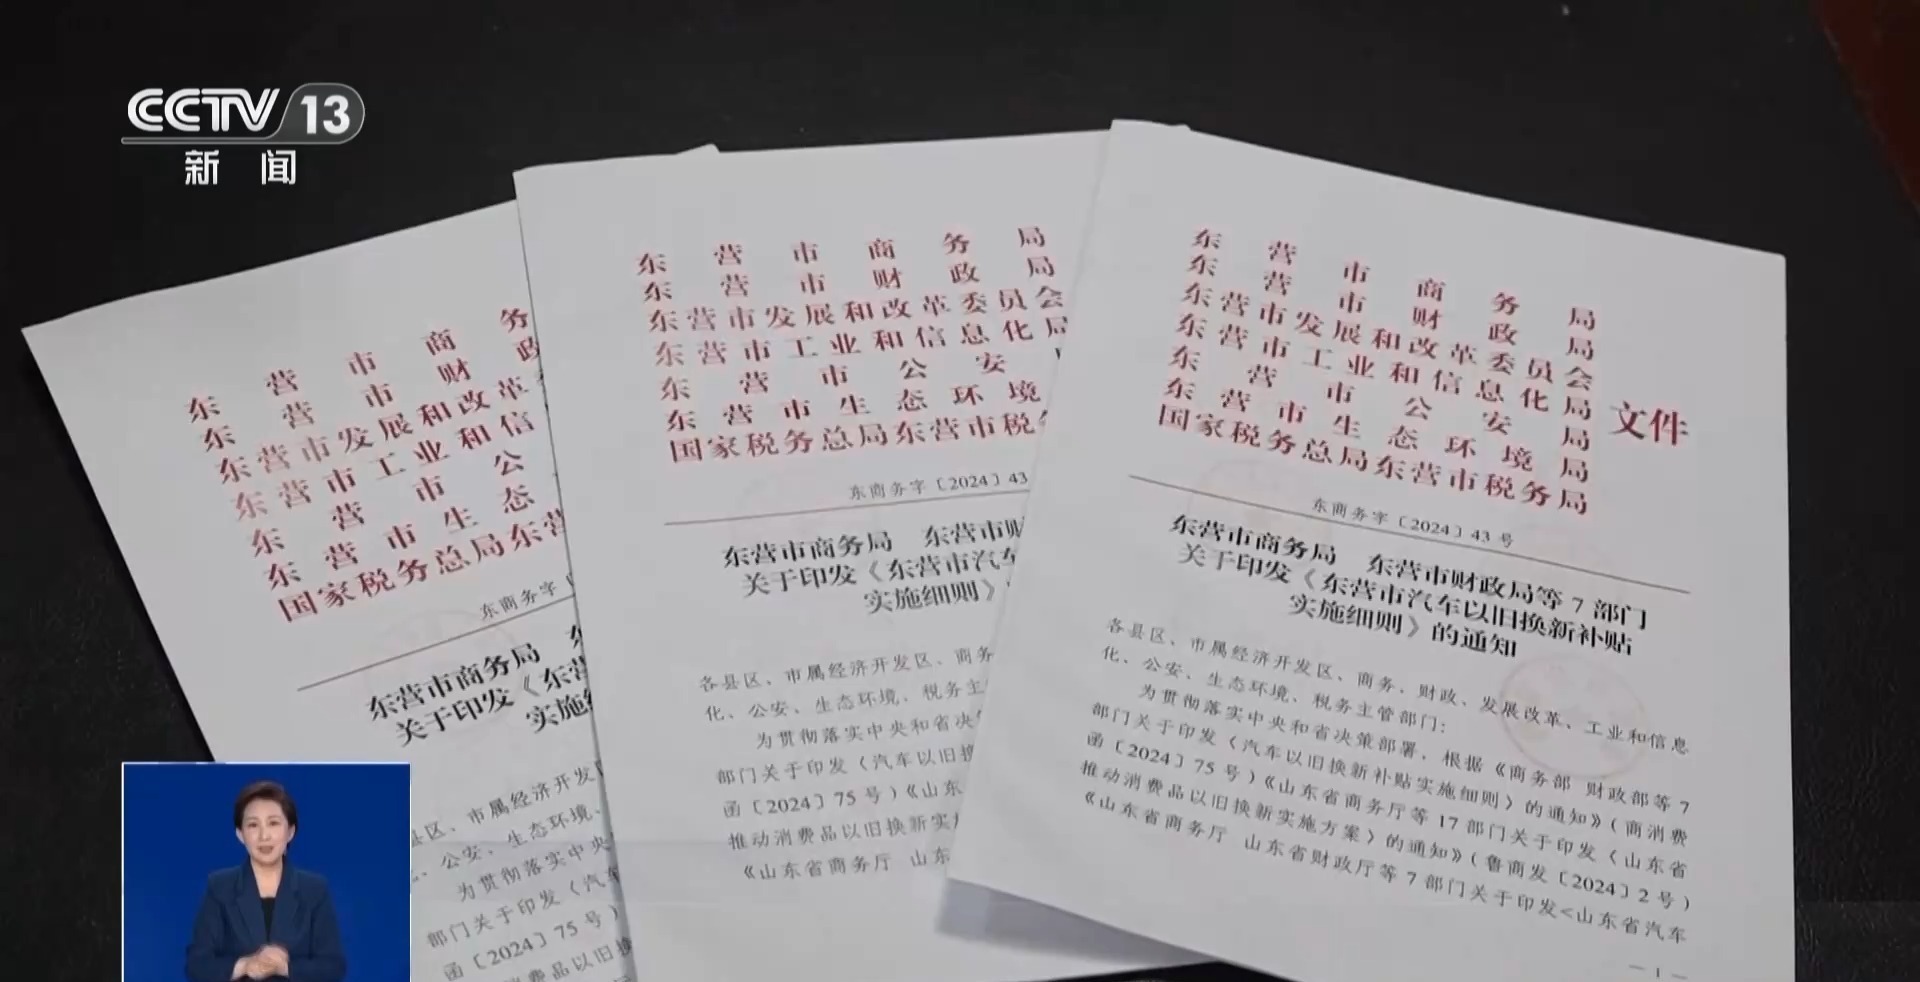 CCTV 13
新闻
东营市商务
东营市财政
东营市发展和改革
东营市工业和信
东营市公
东营市生态
国家税务总局东营
东商务字
东营市商务局
关于印发《东营
实施
县区、市属经济开发区
、公安、生态环境、
为贯彻落实中央
部门关于印发《汽
函〔2024〕75号)
推动消费品以旧换
东营市商务局
东营市财政局
东营市发展和改革委员会
东营市工业和信息化局
东营市公安
东营市生态环境
国家税务总局东营市税务
东商务字〔2024〕43
东营市商务局 东营市财
关于印发《东营市汽车
实施细则》
各县区、市属经济开发区、商务
化、公安、生态环境、税务主
为贯彻落实中央和省决策
部门关于印发《汽车以旧换
函〔2024〕75号)《山东
推动消费品以旧换新实施
《山东省商务厅 山东
东营市商务局
东营市财政局
东营市发展和改革委员会
东营市工业和信息化局
东营市公安局
东营市生态环境局
国家税务总局东营市税务局
文件
东商务字〔2024〕43号
东营市商务局 东营市财政局等7部门
关于印发《东营市汽车以旧换新补贴
实施细则》的通知
各县区、市属经济开发区、商务、财政、发展改革、工业和信息
化、公安、生态环境、税务主管部门:
为贯彻落实中央和省决策部署,根据《商务部 财政部等7
部门关于印发〈汽车以旧换新补贴实施细则〉的通知》(商消费
函〔2024〕75号)《山东省商务厅等17部门关于印发〈山东省
推动消费品以旧换新实施方案〉的通知》(鲁商发〔2024〕2号)
《山东省商务厅 山东省财政厅等7部门关于印发<山东省汽车
— 1 —